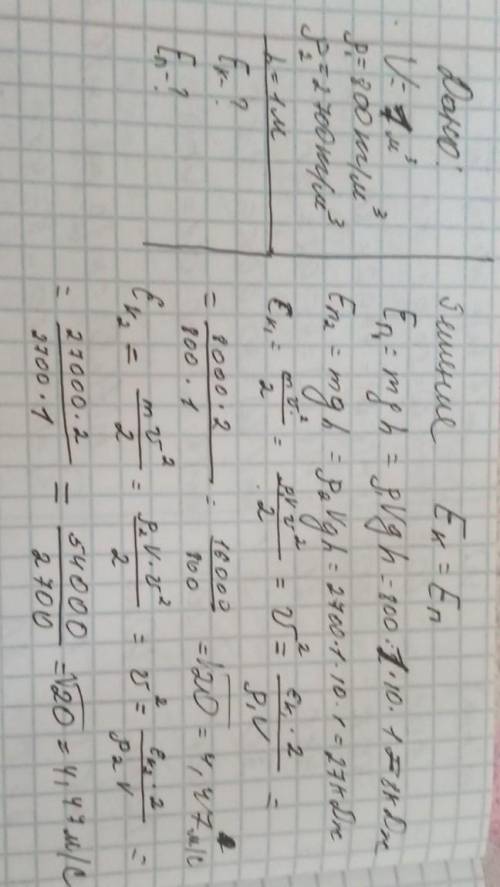 Дано:
V = 1 м³
ρ₁ = 800 кг/м³
ρ₂ = 2700 кг/м³
h = 1 м
Eк - ?
Eп - ?
Решение Eк = Eп
Eп₁ = mgh = ρ₁Vgh = 800 · 1 · 10 · 1 = 8кДж
Eп₂ = mgh = ρ₂Vgh = 2700 · 1 · 10 · 1 = 27кДж
Eк₁ = mv²/2 = ρ₁Vv²/2 = v² = Eк₁·2/ρ₁V =
= 8000·2/800·1 = 16000/800 = √20 = 4,47 м/с
Eк₂ = mv²/2 = ρ₂V·v²/2 = v² = Eк₂·2/ρ₂V =
= 27000·2/2700·1 = 54000/2700 = √20 = 4,47 м/с